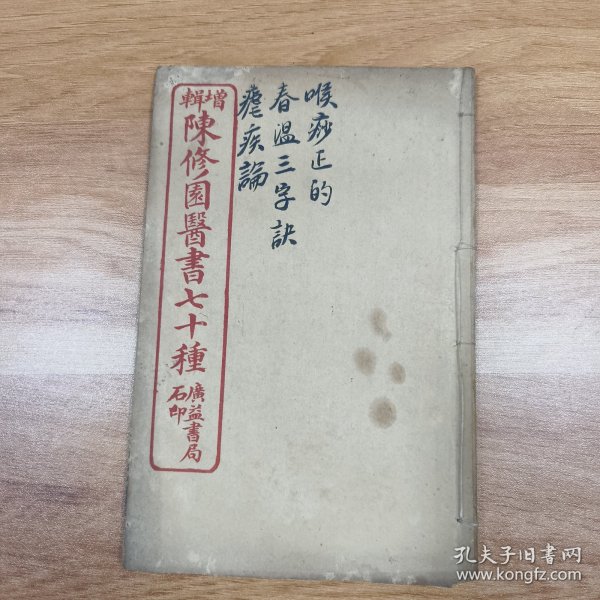 喉痧正的
春温三字訣
瘧疾論
增輯
陳修園醫書七十種
廣益書局
石印
孔夫子旧书网
www.kongfz.com